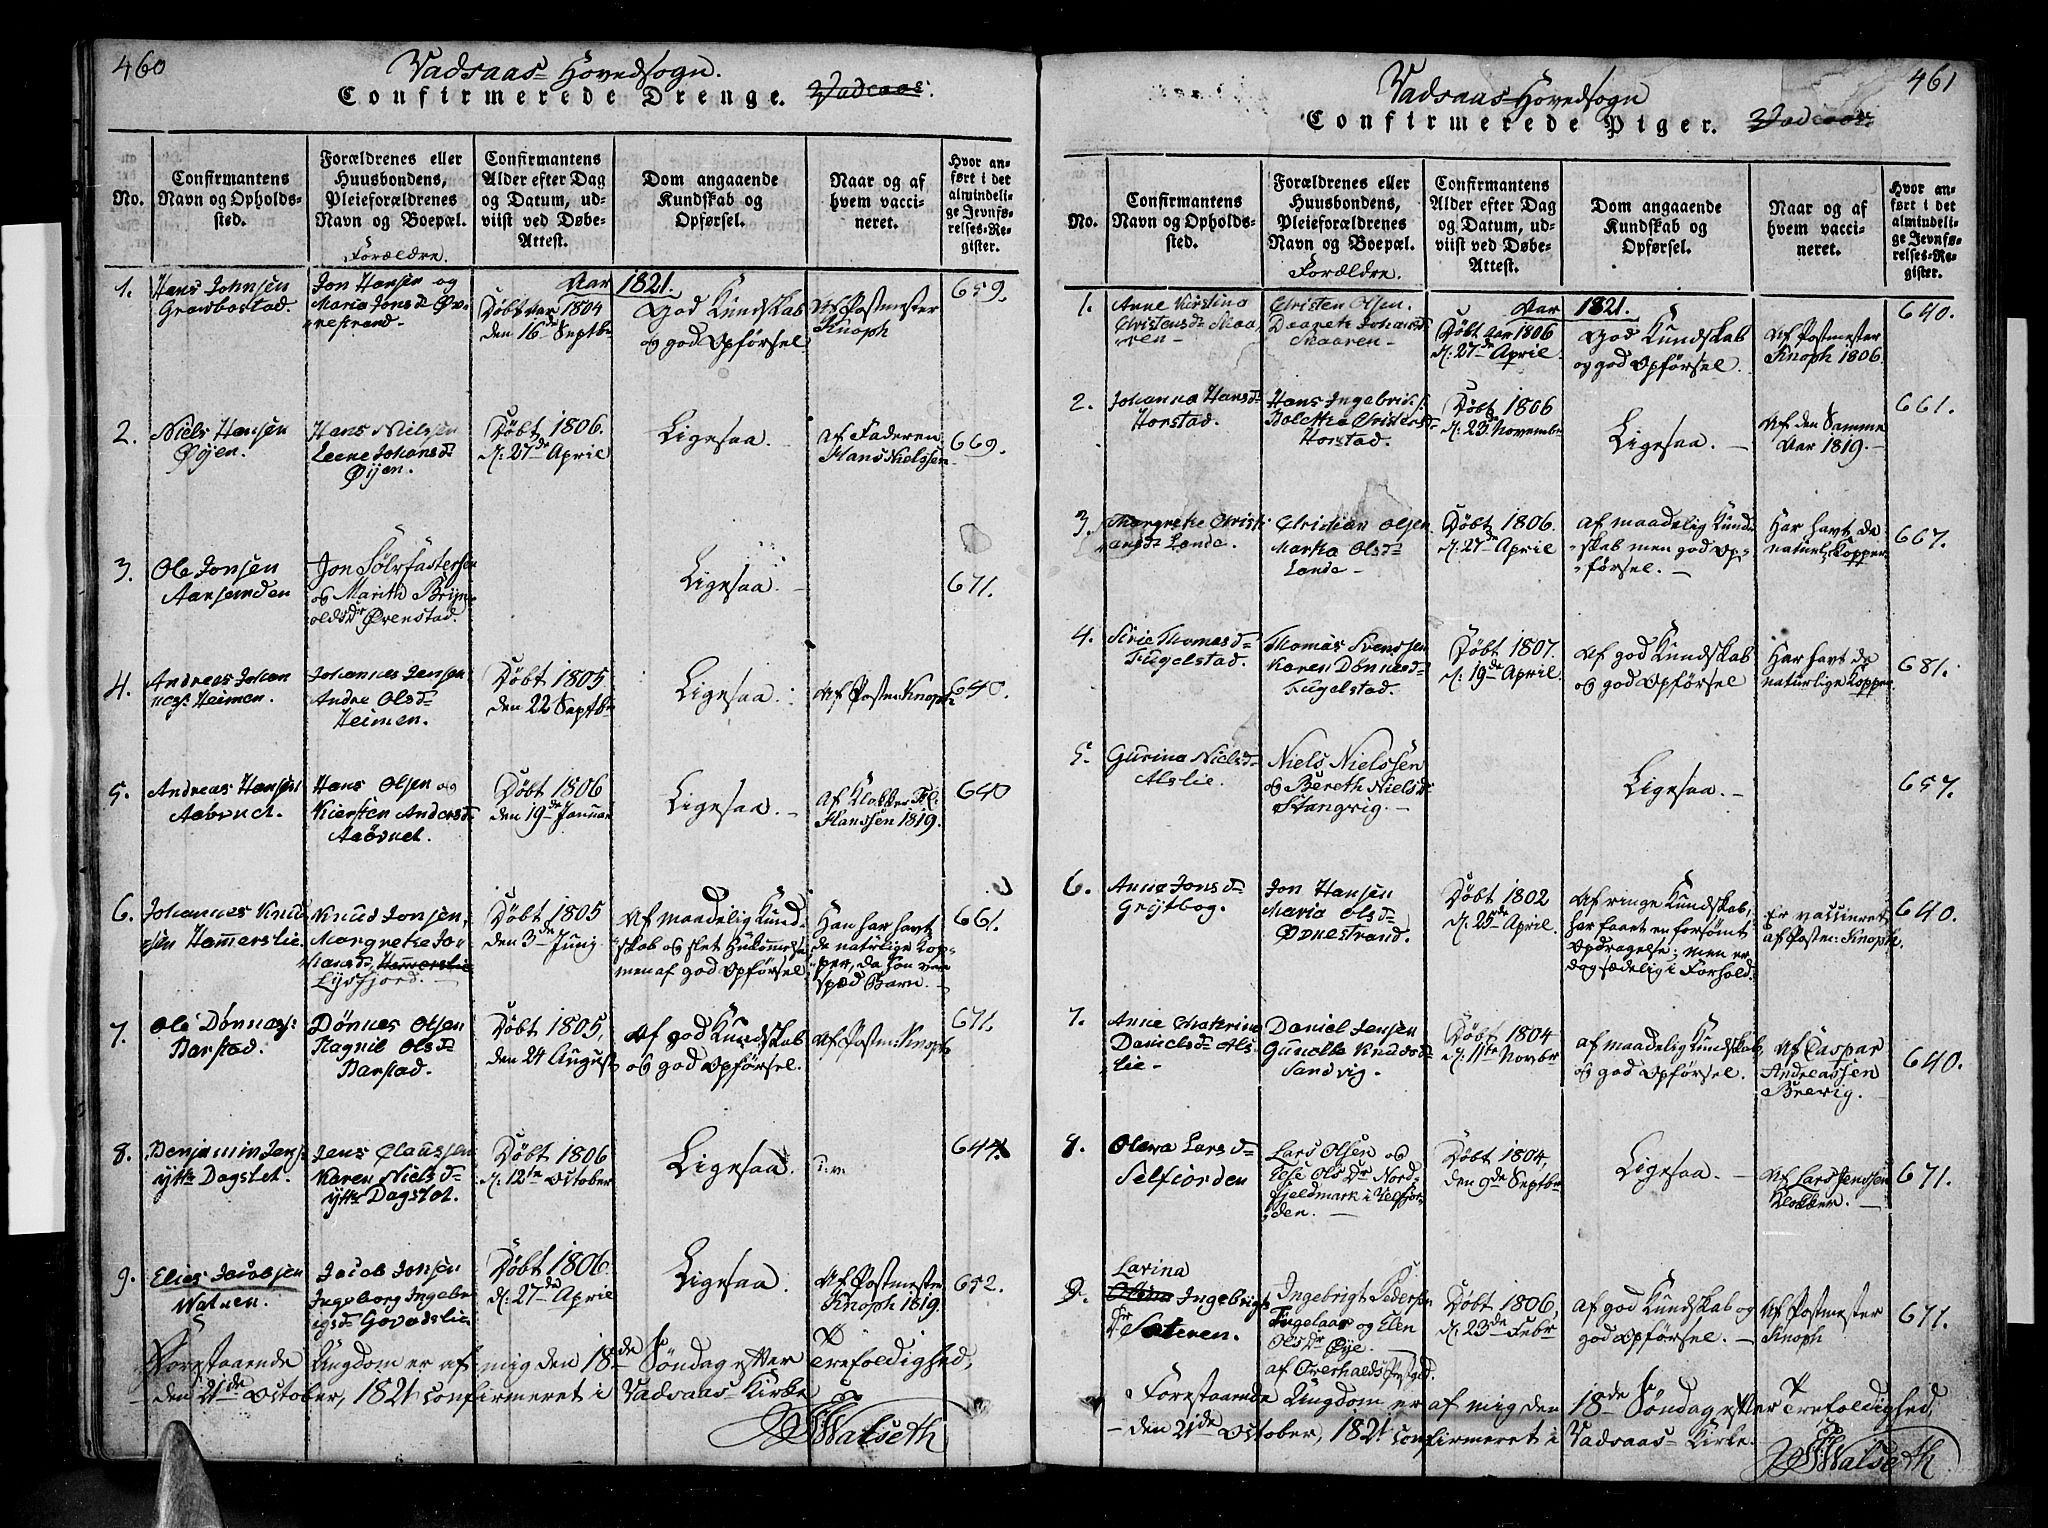 460
Vadsaas Hovedsogn.
Confirmerede Drenge. Vadsaas.
No.
Confirmantens
Navn og Opholds-
sted.
Forældrenes eller
Huusbondens,
Pleieforældrenes
Navn og Boepæl.
Forældre.
Confirmantens
Alder efter Dag
og Datum, ud-
viist ved Døbe-
Attest.
Dom angaaende
Kundskab og
Opførsel.
Naar og af
hvem vacci-
neret.
Hvor an-
ført i det
almindeli-
ge Jevnfø-
relses-Re-
gister.
Aar 1821.
1.
Hans Johnsen
Jon Hansen og
Maria Jonsd.
Døbt Aar 1804
den 16de Septbr
God Kundskab
og god Opførsel
Af Postmester
Knoph
659.
2.
Niels Hansen
Øÿen.
Hans Nilsen
Lene Johansd.
Øÿen.
Døbt 1806.
d. 27de April
Ligesaa. -
Af Faderen
Hans Nielssen
669.
3.
Ole Jonsen
Aarsanden
Jon Sølvfastersen
og Marith Brÿn-
oldsDr Ørenstad.
Ligesaa. -
671.
4.
Andreas Johan
nes: Heimen.
Johannes Jensen
Andre Olsd.
Heimen.
Døbt 1805
den 22 Septbr
Ligesaa.
Af Postm: Knoph
640.
5.
Andreas Hansen
Hans Olsen og
Kiersten Andersd.
Døbt 1806
den 19de Januar
Ligesaa. -
Af Klokker
Hanssen 1819.
640
6.
Johannes Knud
sen Hammerslie.
Knud Jonsen,
Margrethe Jo
hansd. Hammerslie
Lÿsfjord. -
Døbt 1805
den 3de Junÿ
Af maadelig Kund-
skab og slet Hukommelse
men af god Opførsel
Han har havt
de natürlige Kop-
per, da han var
spæd Barn. -
661.
7.
Ole Dønnes:
Barstad.
Dønnes Olsen
Magnil Olsd.
Barstad.
Døbt 1805,
den 24 August
Af god Kundskab
og god Opførsel.
Af Postm: Knoph
671.
8.
Benjamin Jens:
ÿtte Dagslet.
Jens Claussen
Karen Nielsd.
ÿtte Dagslot.
Døbt 1806
d. 12te October
Ligesaa.
644.
9.
Elias Jacobsen
Watnen.
Jacob Jonsen
Ingeborg Ingebr
igsd. Govadslie
Døbt 1806.
d. 27de April
Ligesaa.
Af Postmester
Knoph 1819.
652.
Forestaaende Ungdom er af mig den 18de Søndag efter Trefoldighed,
den 21de October, 1821 confirmeret i Vadsaas Kirke
Walseth
461
Vadsaas Hovedsogn
Confirmerede Piger. Vadsaas.
No.
Confirmantens
Navn og Opholds-
sted.
Forældrenes eller
Huusbondens,
Pleieforældrenes
Navn og Boepæl.
Forældre.
Confirmantens
Alder efter Dag
og Datum, ud-
viist ved Døbe-
Attest.
Dom angaaende
Kundskab og
Opførsel.
Naar og af
hvem vacci-
neret.
Hvor an-
ført i det
almindeli-
ge Jevnfø-
relses-Re-
gister.
Aar 1821.
1.
Anne Kirstina
Christensd. Maa
ren -
Christen Olsen.
Daareth Johansd.
Maaren -
Døbt Aar 1806
d. 27de April.
God Kundskab
og god Opførsel.
Af Postmester
Knoph 1806.
640.
2.
Johanna Hansd.
Horstad.
Hans Ingebri
Boletta Christensd.
Horstad.
Døbt 1806
d. 23de Novembr
Ligesaa. -
Af den Samme
Aar 1819. -
661.
3.
Margrethe Christi
ansd. Lande.
Christian Olsen
Martha Olsd.
Lande -
Døbt 1806.
d. 27de April
Af maadelig Kund
skab men god Op-
førsel. -
Har havt de
naturl: Kopper
667.
4.
Sirie Thomasd.
Fugelstad.
Thomas Svenssen
Karen Dønnesd.
Fugelstad.
Døbt 1807.
d. 19de April.
Af god Kundskab
og god Opførsel
Har havt de
naturlige Kopper
681.
5.
Gurina Nielsd.
Alslie.
Niels Nielssen
og Bereth Nielsd.
Stangvig. -
Ligesaa. -
657.
6.
Anne Jonsd.
Greÿtbog.
Jon Hansen
Maria Olsd.
Døbt 1802
d. 25de April.
Af ringe Kundskab,
har faaet en forsømt
Opdragelse; men er
dog sædelig i Forhold.
Er vaccineret
af Postm: Knoph,
640.
7.
Anne Chatrine
Danielsd. Als
lie -
Daniel Jensen
Gunelle Knudsd.
Sandvig. -
Døbt 1804
d. 11te Novbr
Af maadelig Kundskab
og god Opførsel.
Af Caspar
Andreassen
Brevig.
640.
8.
Olava Larsd.
Selfiorden
Lars Olsen og
Else OlsDr Nord-
fjeldmark i Velfjor-
den. -
Døbt 1804,
den 9de Septbr
Ligesaa. -
Af Lars Jenssen
Klokker. -
671.
9.
Larina
Olina Ingebrigts
Dr
Sæteren.
Ingebrigt Pedersen
Fugelaas og Elen
OlsDr Øÿe.
af Overhalds Præstgd.
Døbt 1806,
d. 23de Febr
Af god Kundskab og
god Opførsel. -
Af Postmester
Knoph
671.
Forestaaende Ungdom er af mig den 18de Søndag efter Trefoldighed
- den 21de October, 1821 confirmeret i Vadsaas Kirke.
Walseth